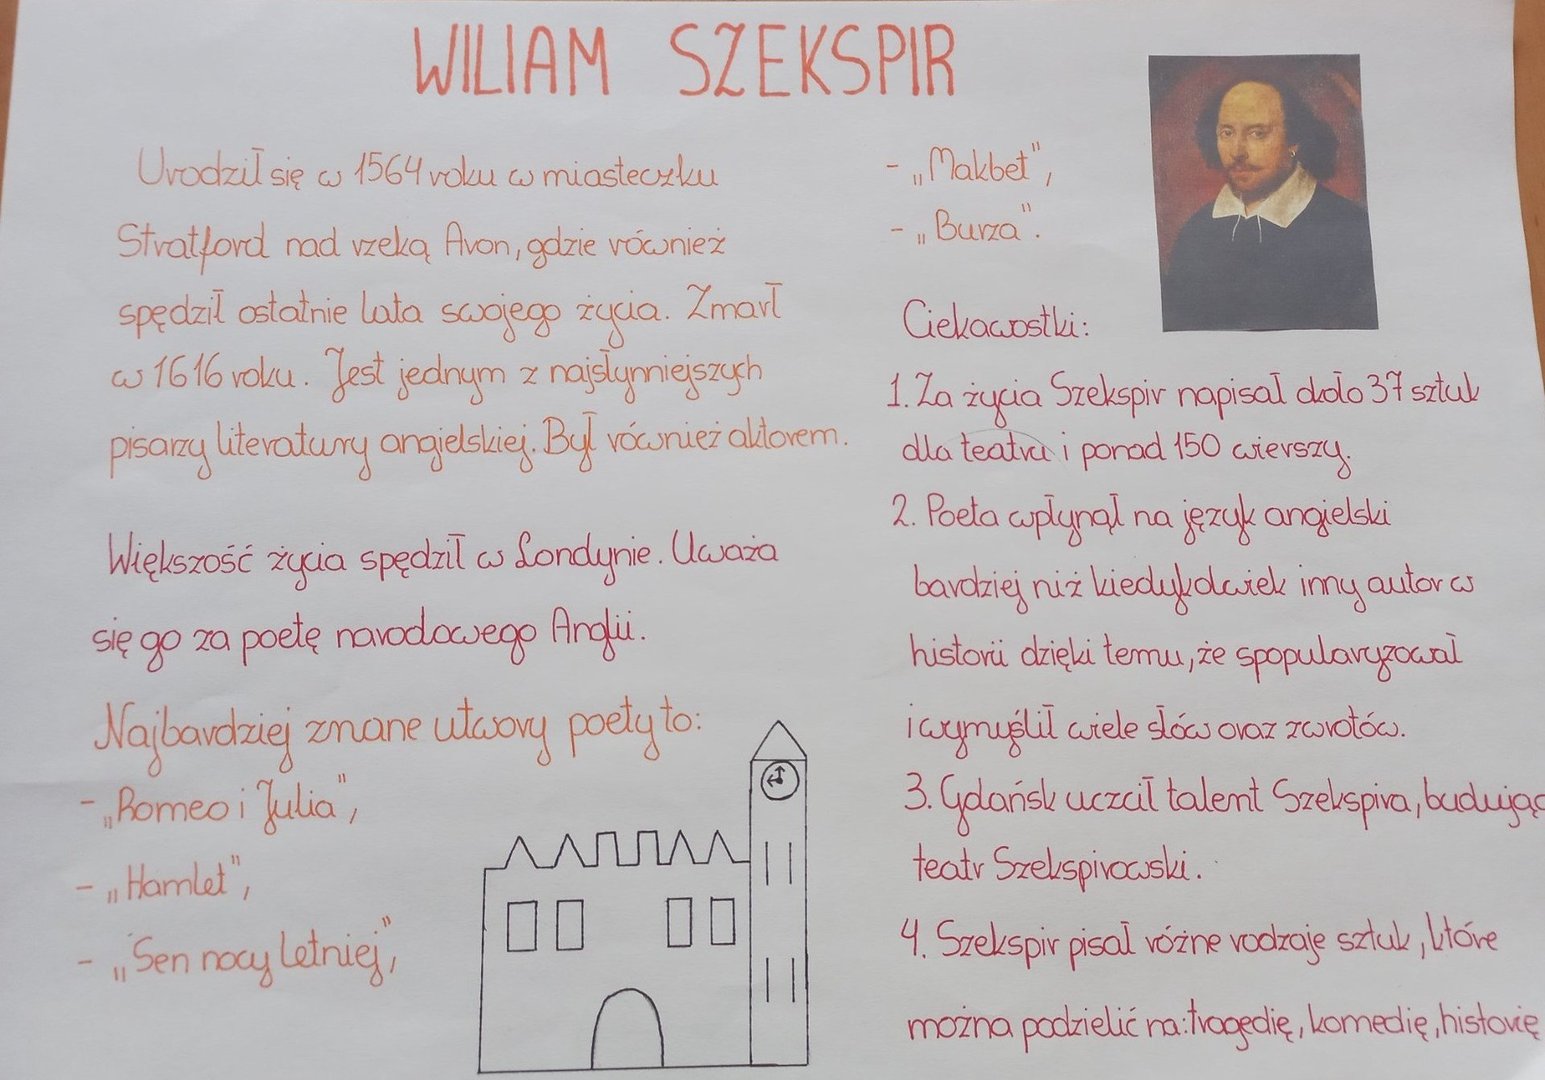 WILIAM SZEKSPIR
Urodził się w 1564 roku w miasteczku
Stratford nad rzeką Avon, gdzie również
spędził ostatnie lata swojego życia. Zmarł
w 1616 roku. Jest jednym z najsłynniejszych
pisarzy literatury angielskiej. Był również aktorem.
Większość życia spędził w Londynie. Uważa
się go za poetę narodowego Anglii.
Najbardziej znane utwory poety to:
- „Romeo i Julia”,
- „Hamlet”,
- „Sen nocy letniej”,
- „Makbet”,
- „Burza”.
Ciekawostki:
1. Za życia Szekspir napisał około 37 sztuk
dla teatru i ponad 150 wierszy.
2. Poeta wpłynął na język angielski
bardziej niż kiedykolwiek inny autor w
historii dzięki temu, że spopularyzował
i wymyślił wiele słów oraz zwrotów.
3. Gdańsk uczcił talent Szekspira, budując
teatr Szekspirowski.
4. Szekspir pisał różne rodzaje sztuk, które
można podzielić na: tragedię, komedię, historię